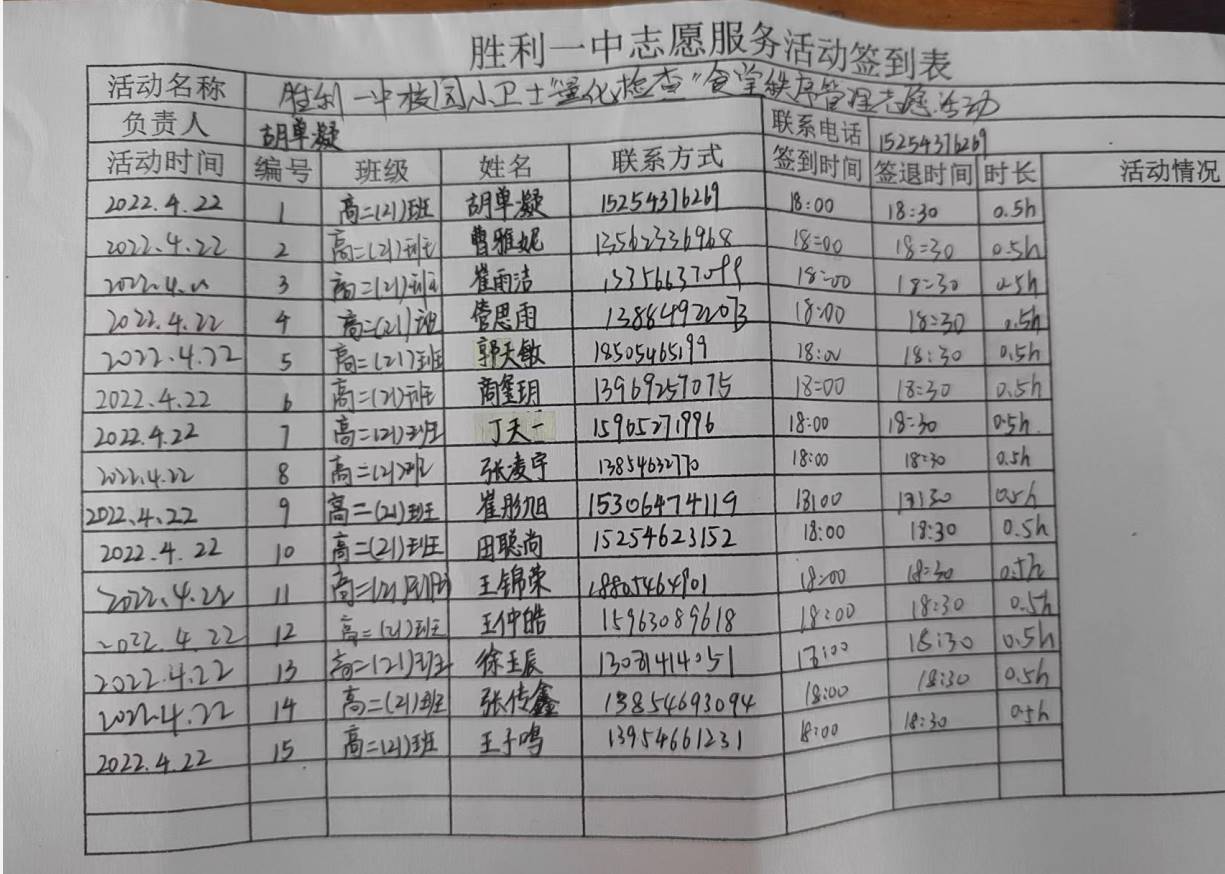 胜利一中志愿服务活动签到表
活动名称 胜利一中校园小卫士"量化检查"食堂秩序管理志愿活动
负责人 胡单凝 联系电话 15254376269
活动时间 编号 班级 姓名 联系方式 签到时间 签退时间 时长 活动情况
2022.4.22 1 高二(21)班 胡单凝 15254376269 18:00 18:30 0.5h
2022.4.22 2 高二(21)班 曹雅妮 13562336968 18:00 18:30 0.5h
2022.4.22 3 高二(21)班 崔雨洁 13356637099 18:00 18:30 0.5h
2022.4.22 4 高二(21)班 管思雨 13864922073 18:00 18:30 0.5h
2022.4.22 5 高二(21)班 郭天敏 18505465199 18:00 18:30 0.5h
2022.4.22 6 高二(21)班 商玺玥 13969257075 18:00 18:30 0.5h
2022.4.22 7 高二(21)班 丁天一 15965271996 18:00 18:30 0.5h
2022.4.22 8 高二(21)班 张凌宇 13854632770 18:00 18:30 0.5h
2022.4.22 9 高二(21)班 崔彤旭 15306474119 18:00 18:30 0.5h
2022.4.22 10 高二(21)班 田聪尚 15254623152 18:00 18:30 0.5h
2022.4.22 11 高二(21)班 王锦荣 18:00 18:30 0.5h
2022.4.22 12 高二(21)班 王仲皓 15963089618 18:00 18:30 0.5h
2022.4.22 13 高二(21)班 徐玉辰 18:00 18:30 0.5h
2022.4.22 14 高二(21)班 张传鑫 13854693094 18:00 18:30 0.5h
2022.4.22 15 高二(21)班 王子鸣 13954661231 18:00 18:30 0.5h